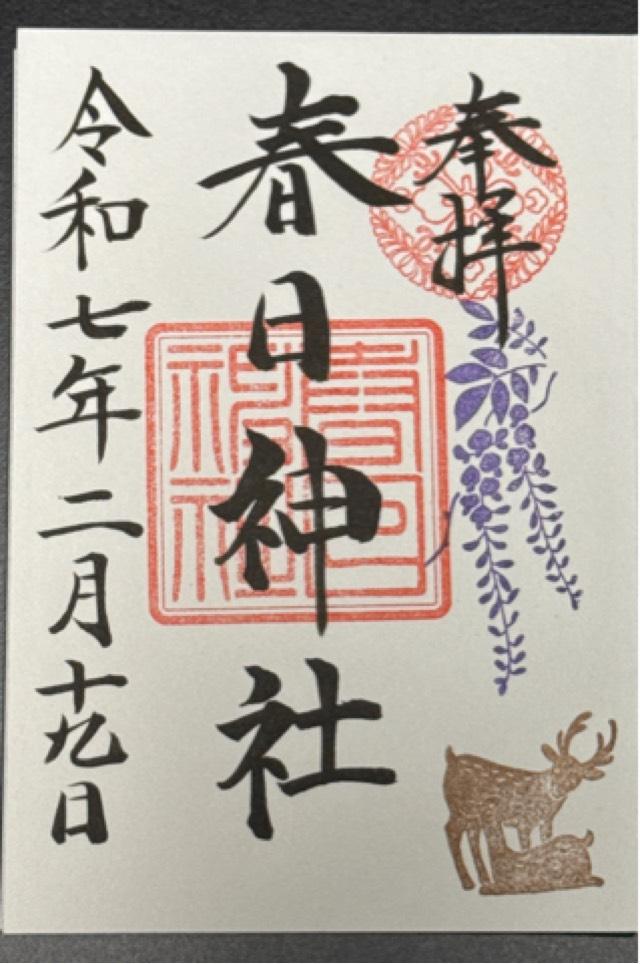 奉拝
春日神社
令和七年二月十九日
春日
神社